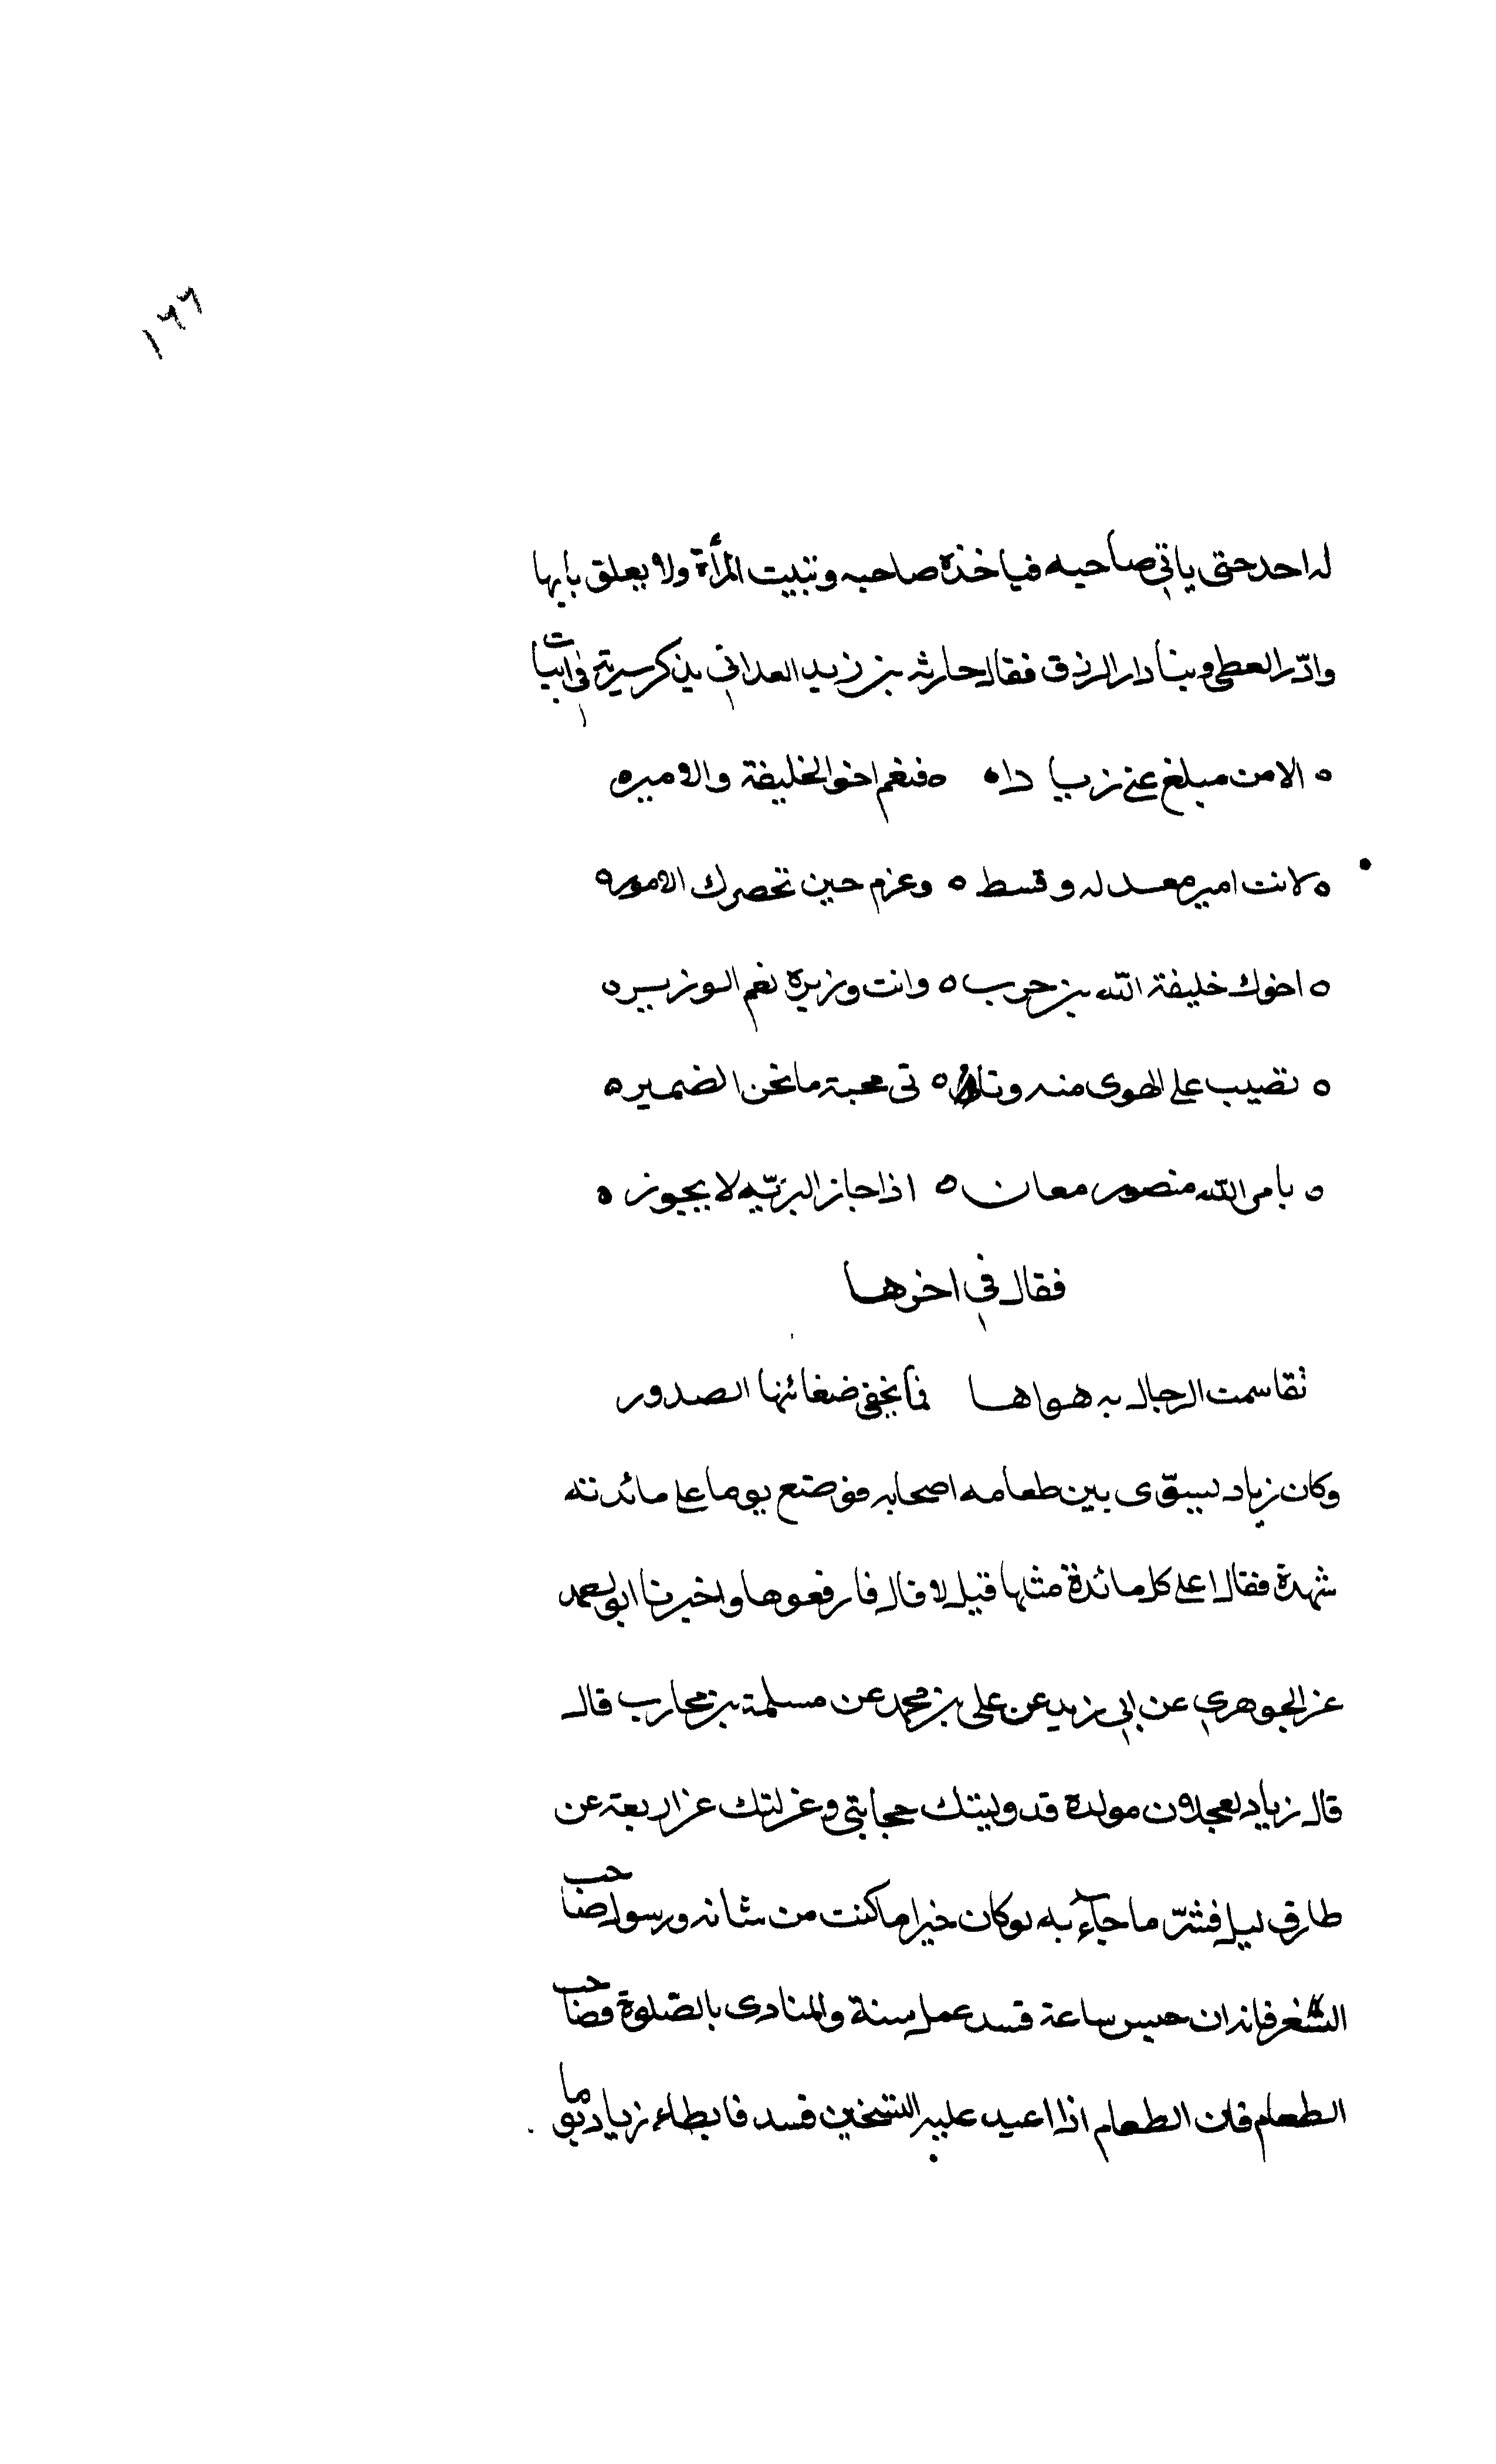 ١٢٢
له احد حتى ياتي صاحبه فياخذه صاحبه وتبيت المرأة ولا يعلق بابها
وادّر العطى وبنا دار الرزق فقال حارثه بن زيد العداني يذكر سيرته في ابيات
ه الا من مبلغ عني زيادا ه ه فنعم اخو الخليفة والامير ه
ه لانت امير معدله وقسط ه وعزم حين تحصرك الامور ه
ه اخوك خليفة الله بن حرب ه وانت وزيره نعم الوزير ه
ه تصيب على الهوى منه وتا ه تى محبة ما تخن الضمير ه
ه بامر الله منصور معان ه اذا جاز البريّه لا يجوز ه
فقال في اخرها
تقاسمت الرجال به هواها فما يخفى ضغائنها الصدور
وكان زياد ليسوّى بين طعامه اصحابه فوضع يوما على مائدته
شهدة فقال اعلى كل مائدة مثلها قيل لا قال فارفعوها واخبرنا ابو احمد
عن الجوهري عن ابي زيد عن علي بن محمد عن مسلمة بن محارب قال
قال زياد لعجلان مولده قد وليتك حجابتي وعزلتك عن اربعة عن
طارق ليل فشرّ ما جآء به لو كان خيرا ما كنت من شانه ورسول صاحب
الثغر فانه ان حبس ساعة فسد عمل سنة والمنادى بالصّلوة وصاحب
الطعام فان الطعام اذا اعيد عليه التسخين فسد فابطاء زياد يوما